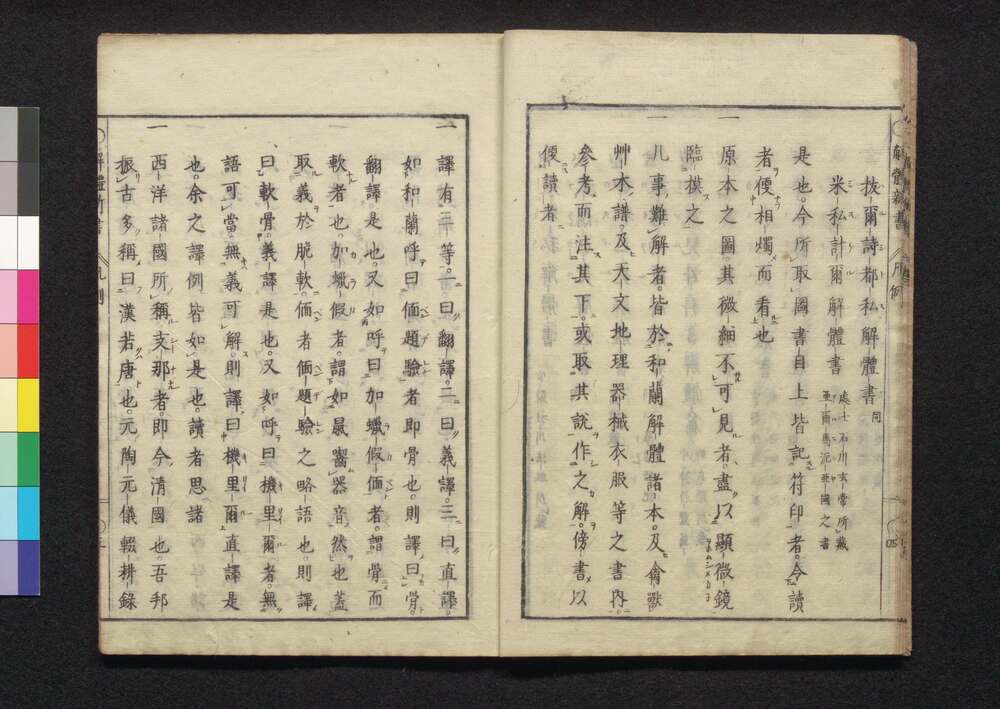 解體新書 凡例 四
拔爾詩都私解體書 同
米私計爾解體書 處士石川玄常所藏
亜爾馬泥亜國之書
是也。今所取圖書自上皆記符印者。令讀
者便相燭而看也
一原本之圖。其微細不可見者。盡以顯微鏡
臨摸之
一凡事難解者。皆於和蘭解體諸本。及禽獸
艸木譜。及天文地理器械衣服等之書內。
參考而注其下。或取其說作之解。傍書以
便讀者
一譯有三等。一曰翻譯。二曰義譯。三曰直譯
如和蘭呼曰価題驗者即骨也。則譯曰骨。
翻譯是也。又如呼曰加蝋假価者。謂骨而
軟者也。加蝋假者。謂如鼠囓器音然也蓋
取義於脆軟。価者価題驗之略語也。則譯
曰軟骨。義譯是也。又如呼曰機里爾者。無
語可當。無義可解。則譯曰機里爾。直譯是
也。余之譯例皆如是也。讀者思諸
一西洋諸國所稱支那者。即今清國也。吾邦
振古多稱曰漢若唐也。元陶元儀輟耕錄
解體新書 凡例